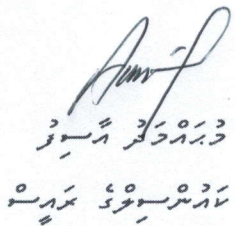 މުޙައްމަދު އާސިފު
ކައުންސިލްގެ ރައީސް